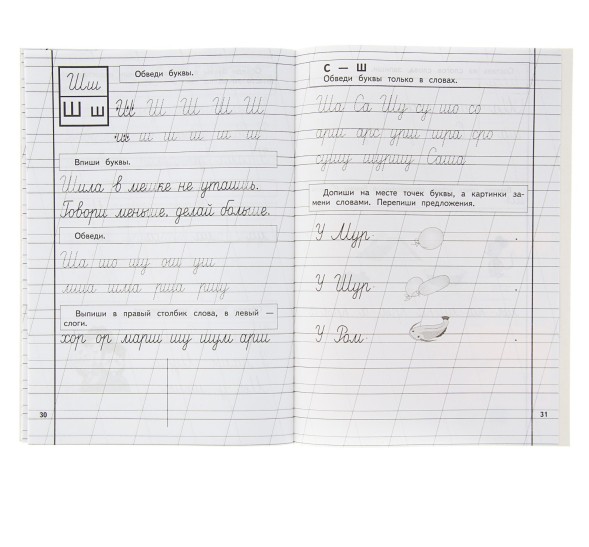 Шш
Ш ш
Обведи буквы.
Ш Ш Ш Ш Ш
ш ш ш ш ш ш
Впиши буквы.
Шила в мешке не утаишь.
Говори меньше, делай больше.
Обведи.
Ша шо шу ош уш
Выпиши в правый столбик слова, в левый —
слоги.
хор ор марш шу шум арш
30
С — Ш
Обведи буквы только в словах.
Ша Са Шу су шо со
Саша
Допиши на месте точек буквы, а картинки за-
мени словами. Перепиши предложения.
У Мур
.
У Шур
.
У Ром
.
31